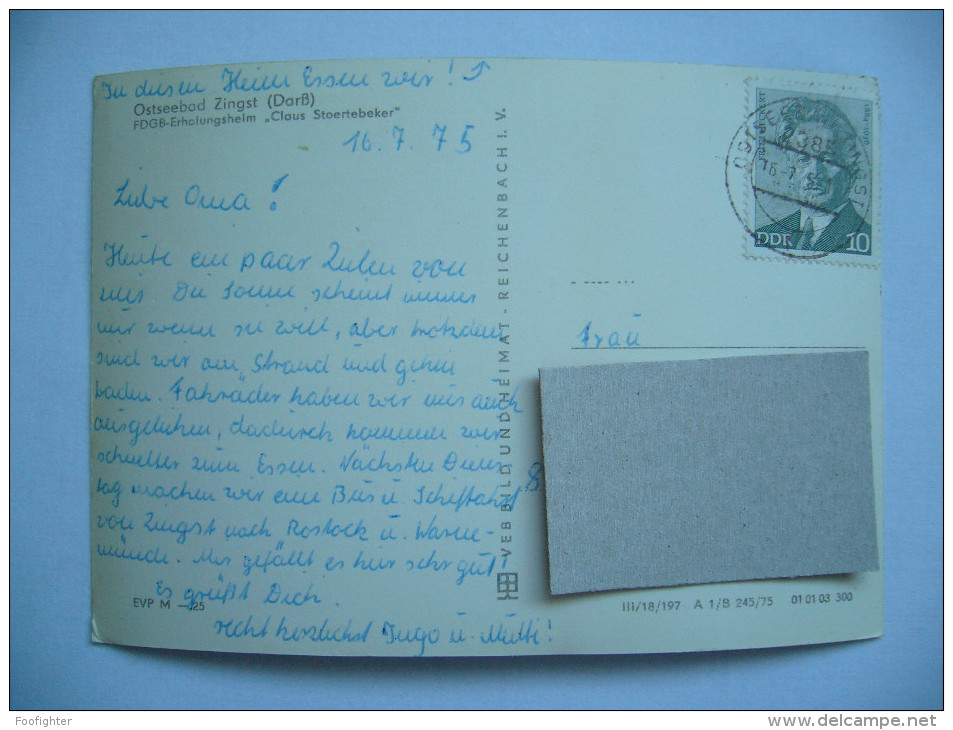 In diesem Heim Essen wir!
Ostseebad Zingst (Darß)
FDGB-Erholungsheim „Claus Stoertebeker"
16. 7. 75
Liebe Oma!
Heute ein paar Zeilen von
uns. Die Sonne scheint immer
nur wenn sie will, aber trotzdem
sind wir am Strand und gehen
baden. Fahrräder haben wir uns auch
ausgeliehen, dadurch kommen wir
schneller zum Essen. Nächsten Diens-
tag machen wir eine Bus u. Schiffahrt
von Zingst nach Rostock u. Warne-
münde. Mir gefällt es hier sehr gut!
Es grüßt Dich
recht herzlichst Ingo u. Mutti!
EVP M —,25
VEB BILD UND HEIMAT - REICHENBACH I. V.
FRITZ HECKERT
DDR 10
OSTSEEBAD ZINGST
2385
16.-7
Frau
8
III/18/197 A 1/B 245/75 01 01 03 300
Foofighter
www.delcampe.net